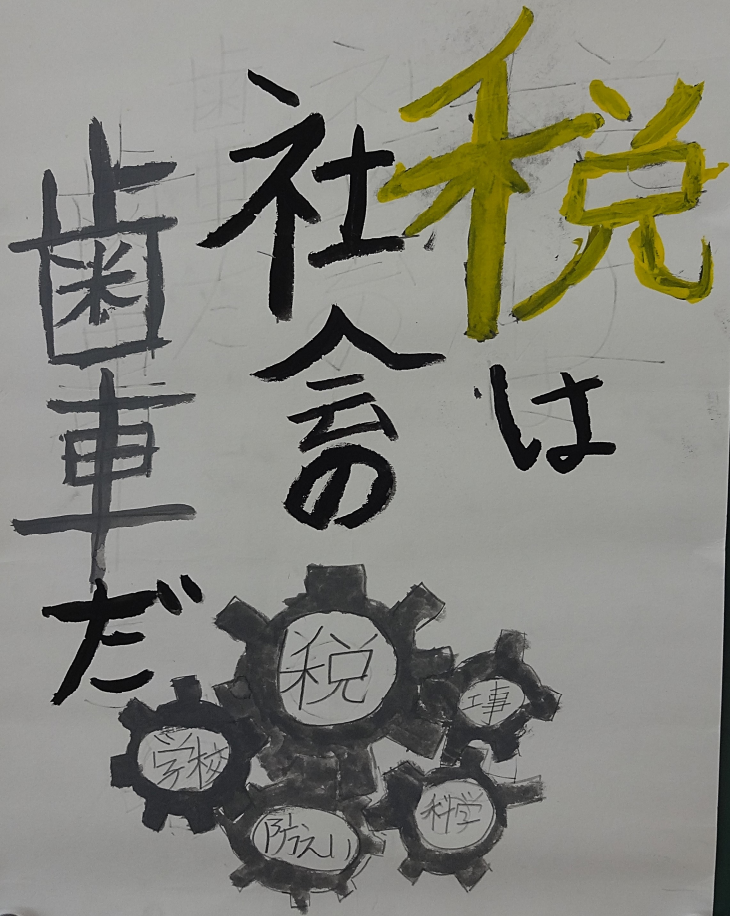 税は
社会の
歯車だ
税
工事
学校
科学
防えい